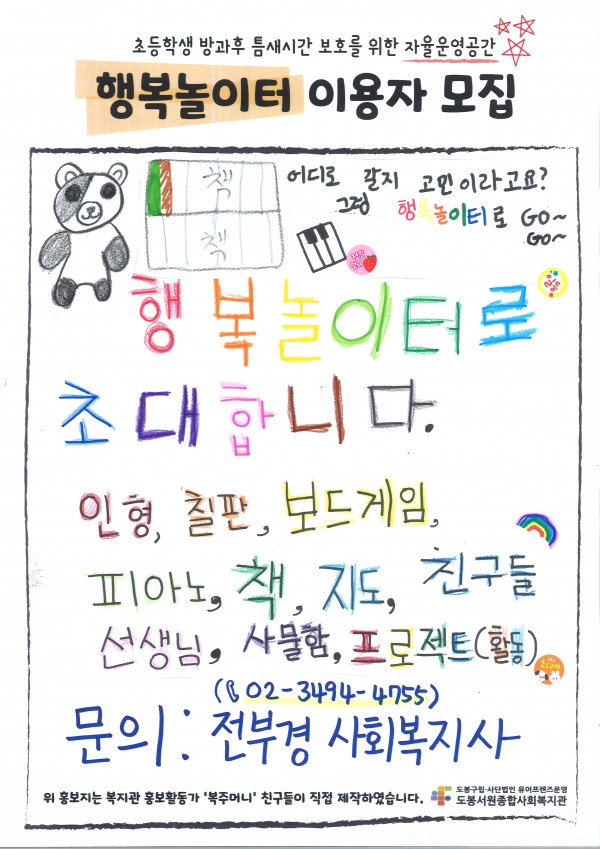 초등학생 방과후 틈새시간 보호를 위한 자율운영공간
행복놀이터 이용자 모집
책
책
어디로 갈지 고민이라고요?
그럼 행복놀이터로 GO~
GO~
행복놀이터로
초대합니다.
인형, 칠판, 보드게임,
피아노, 책, 지도, 친구들
선생님, 사물함, 프로젝트(활동)
(02-3494-4755)
문의: 전부경 사회복지사
위 홍보지는 복지관 홍보활동가 '복주머니' 친구들이 직접 제작하였습니다.
도봉구립·사단법인 유어프렌즈운영
도봉서원종합사회복지관